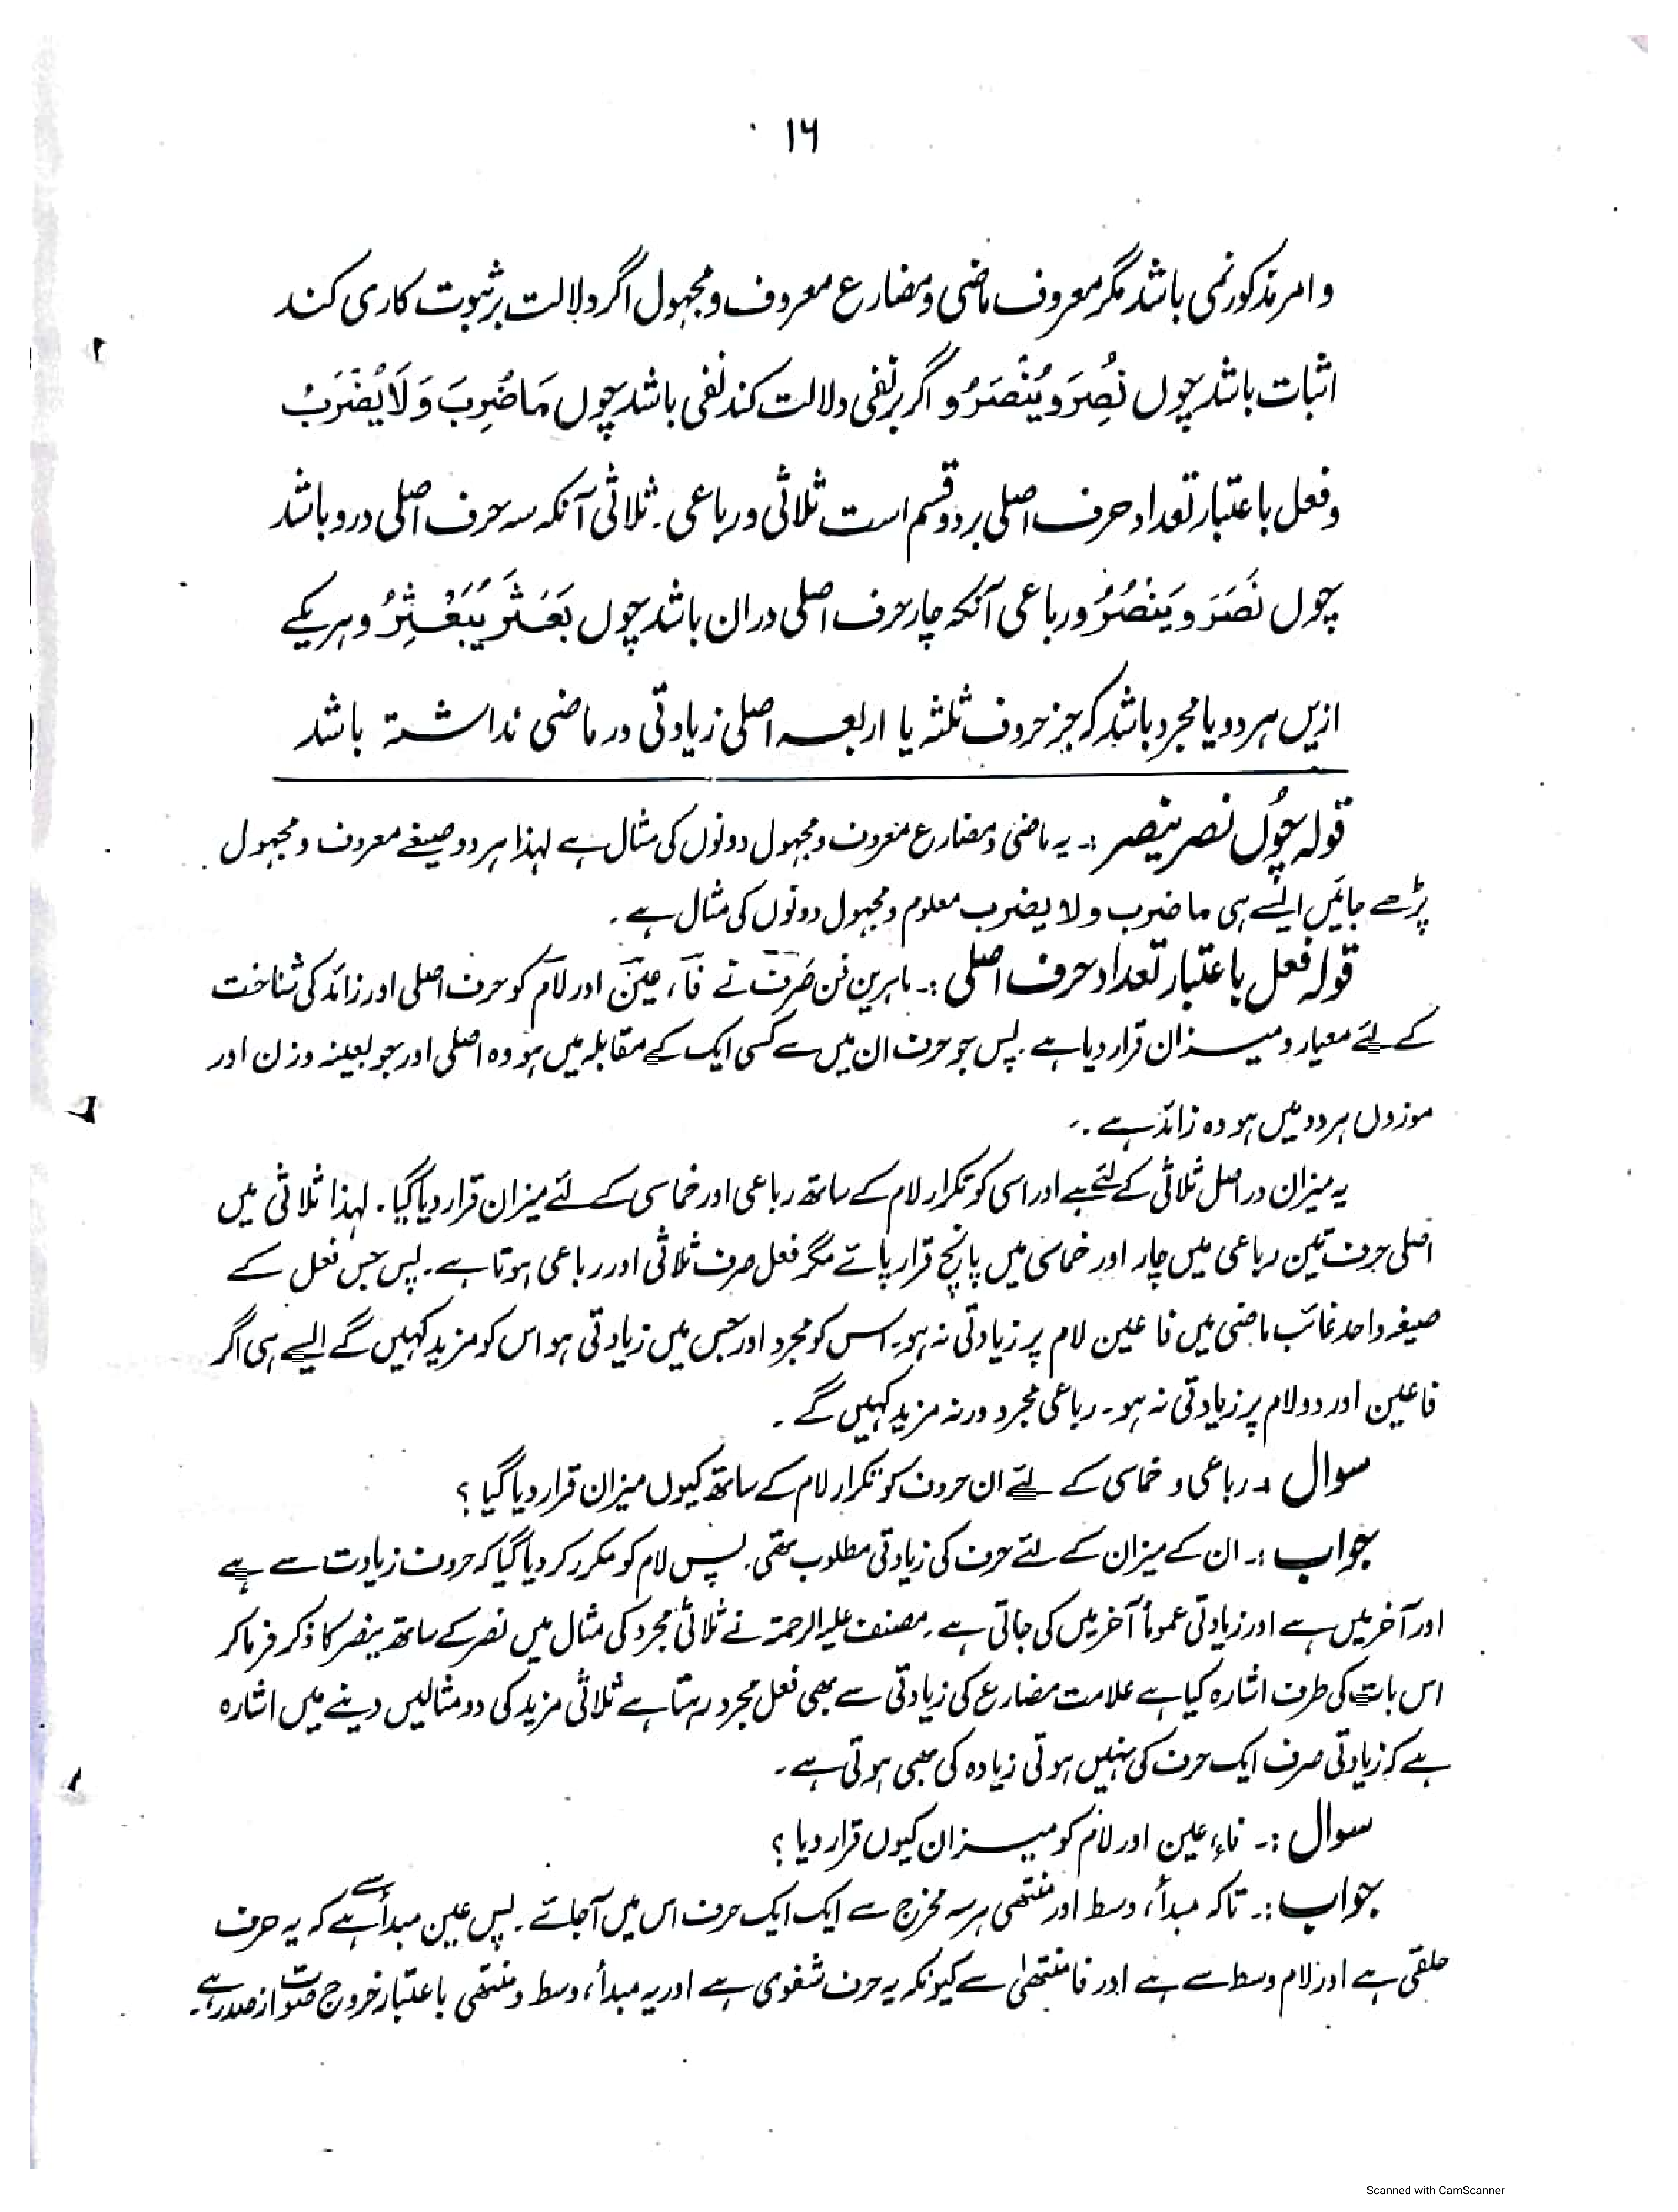 ۱۶
و امر مذکور نمی باشد مگر معروف ماضی و مضارع معروف و مجہول اگر دلالت بر ثبوت کاری کند
اثبات باشد چوں نُصِرَ وَ يُنْصَرُ و اگر بر نفی دلالت کند نفی باشد چوں مَا ضُرِبَ وَ لَا يُضْرَبُ
و فعل باعتبار تعداد حرف اصلی بر دو قسم است ثلاثی و رباعی۔ ثلاثی آنکہ سہ حرف اصلی درو باشد
چوں نَصَرَ وَ يَنْصُرُ و رباعی آنکہ چار حرف اصلی دران باشد چوں بَعْثَرَ يُبَعْثِرُ و ہر یکے
ازیں ہر دو یا مجرد باشد کہ جز حروف ثلثہ یا اربعہ اصلی زیادتی در ماضی نداشتہ باشد
قولہ چُوں نصر ینصر :۔ یہ ماضی و مضارع معروف و مجہول دونوں کی مثال ہے لہذا ہر دو صیغے معروف و مجہول
پڑھے جائیں ایسے ہی ما ضرب و لا یضرب معلوم و مجہول دونوں کی مثال ہے ۔
قولہ فعل باعتبار تعداد حرف اصلی :۔ ماہرین فن صَرف نے فآء، عین اور لام کو حرف اصلی اور زائد کی شناخت
کے لئے معیار و میزان قرار دیا ہے ۔ پس جو حرف ان میں سے کسی ایک کے مقابلہ میں ہو وہ اصلی اور جو بعینہ وزن اور
موزوں ہر دو میں ہو وہ زائد ہے ۔
یہ میزان در اصل ثلاثی کے لئے ہے اور اسی کو تکرار لام کے ساتھ رباعی اور خماسی کے لئے میزان قرار دیا گیا ۔ لہذا ثلاثی میں
اصلی حرف تین رباعی میں چار اور خماسی میں پانچ قرار پائے مگر فعل صرف ثلاثی اور رباعی ہوتا ہے۔ پس جس فعل کے
صیغہ واحد غائب ماضی میں فا عین لام پر زیادتی نہ ہو۔ اس کو مجرد اور جس میں زیادتی ہو اس کو مزید کہیں گے ایسے ہی اگر
فا عین اور دو لام پر زیادتی نہ ہو۔ رباعی مجرد ورنہ مزید کہیں گے ۔
سوال :۔ رباعی و خماسی کے لئے ان حروف کو تکرار لام کے ساتھ کیوں میزان قرار دیا گیا ؟
جواب :۔ ان کے میزان کے لئے حرف کی زیادتی مطلوب تھی۔ پس لام کو مکرر کر دیا گیا کہ حروف زیادت سے ہے
اور آخر میں ہے اور زیادتی عموماً آخر میں کی جاتی ہے ۔ مصنف علیہ الرحمۃ نے ثلاثی مجرد کی مثال میں نصر کے ساتھ ینصر کا ذکر فرما کر
اس بات کی طرف اشارہ کیا ہے علامت مضارع کی زیادتی سے بھی فعل مجرد رہتا ہے ثلاثی مزید کی دو مثالیں دینے میں اشارہ
ہے کہ زیادتی صرف ایک حرف کی نہیں ہوتی زیادہ کی بھی ہوتی ہے۔
سوال :۔ فاء، عین اور لام کو میزان کیوں قرار دیا ؟
جواب :۔ تاکہ مبدأ، وسط اور منتھی ہر سہ مخرج سے ایک ایک حرف اس میں آجائے ۔ پس عین مبدأ سے ہے کہ یہ حرف
حلقی ہے اور لام وسط سے ہے اور فا منتھیٰ سے کیونکہ یہ حرف شفوی ہے اور یہ مبدأ، وسط و منتھی باعتبار خروج صوت از صدر ہے۔
Scanned with CamScanner